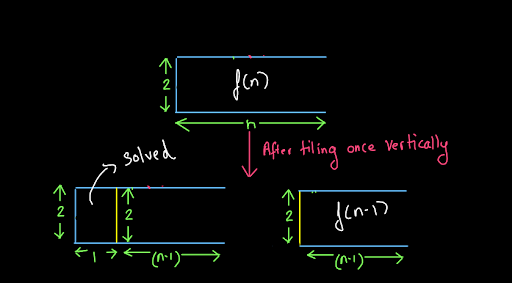 2
f(n)
n
After tiling once vertically
solved
2
2
1
(n-1)
2
f(n-1)
(n-1)